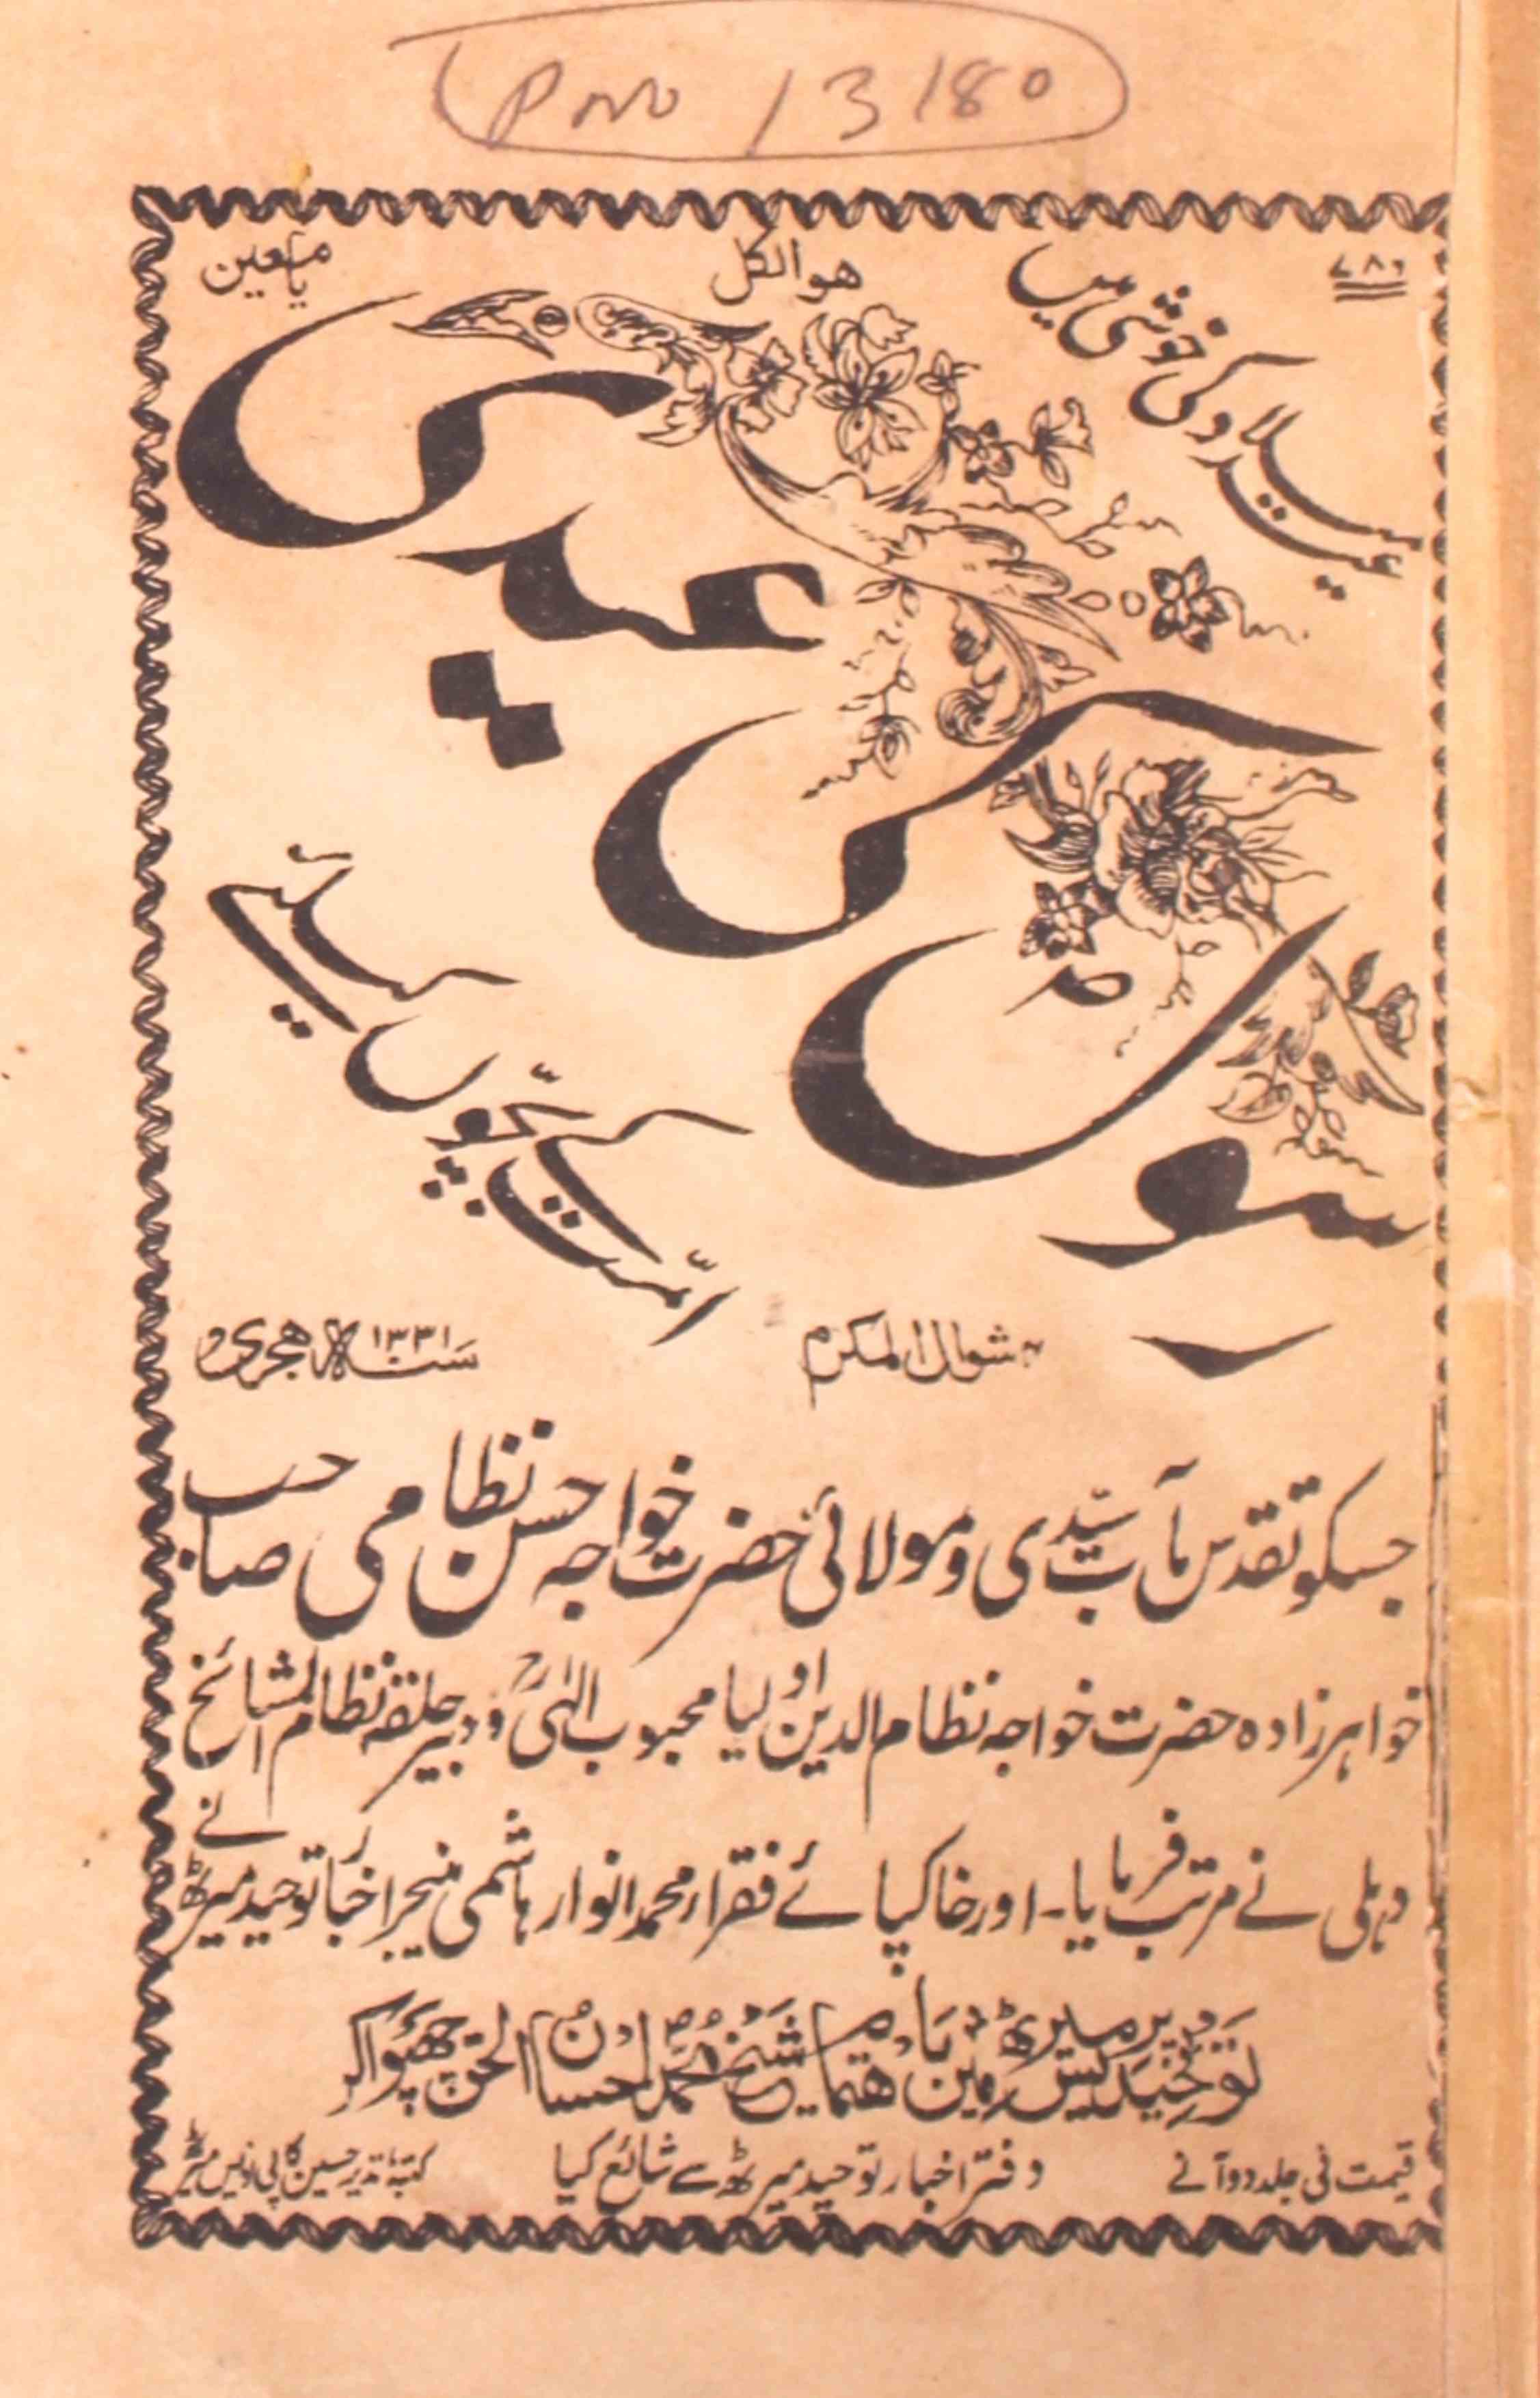 P No 13180
۷۸۶
هو الکل
یا معین
عید میلاد کی خوشی میں
رسولؐ کی عیدی
امّت کے بچّوں کے لیے
شوال المکرم
سنه ۱۳۳۱ هجری
جسکو تقدس مآب سیّدی و مولائی حضرت خواجہ حسن نظامی صاحب
خواہر زادہ حضرت خواجہ نظام الدین اولیا محبوب الٰہیؒ و دبیر حلقہ نظام المشائخ
دہلی نے مرتب فرمایا۔ اور خاکپائے فقرار محمد انوار ہاشمی منیجر اخبار توحید میرٹھ نے
توحید پریس میرٹھ میں باہتمام شیخ محمد احسان الحق چھپوا کر
قیمت فی جلد دو آنے
دفتر اخبار توحید میرٹھ سے شائع کیا
کتبہ نذیر حسین کاپی نویس میرٹھ